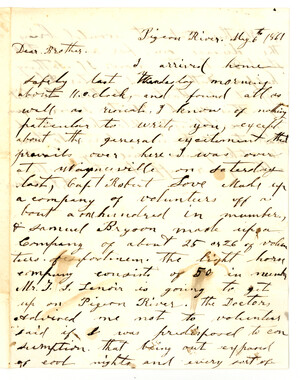 Pigeon River. May 6th 1861
Dear Brother.
I arrived home
safely last Thursday morning
about 11 o clock, and found all as
well as I know of nothing
paticular to write you, except
about the general excitement that
prevails over here. I was over
at Waynesville on Saterday
last, Capt Robert Love Made up
a company of volunteers off a
bout a onehundred in number,
& Samuel Bryson made up a
Company of about 25 or 26 of volun
tiers. The light horse
company consists of 50 in number
Mr. T. I. Lenoir is going to get
up on Pigeon River. the Doctors
advised me not to voluntier
said if I was predisposed to con
sumption. that being out exposed
of cool nights and every sort of